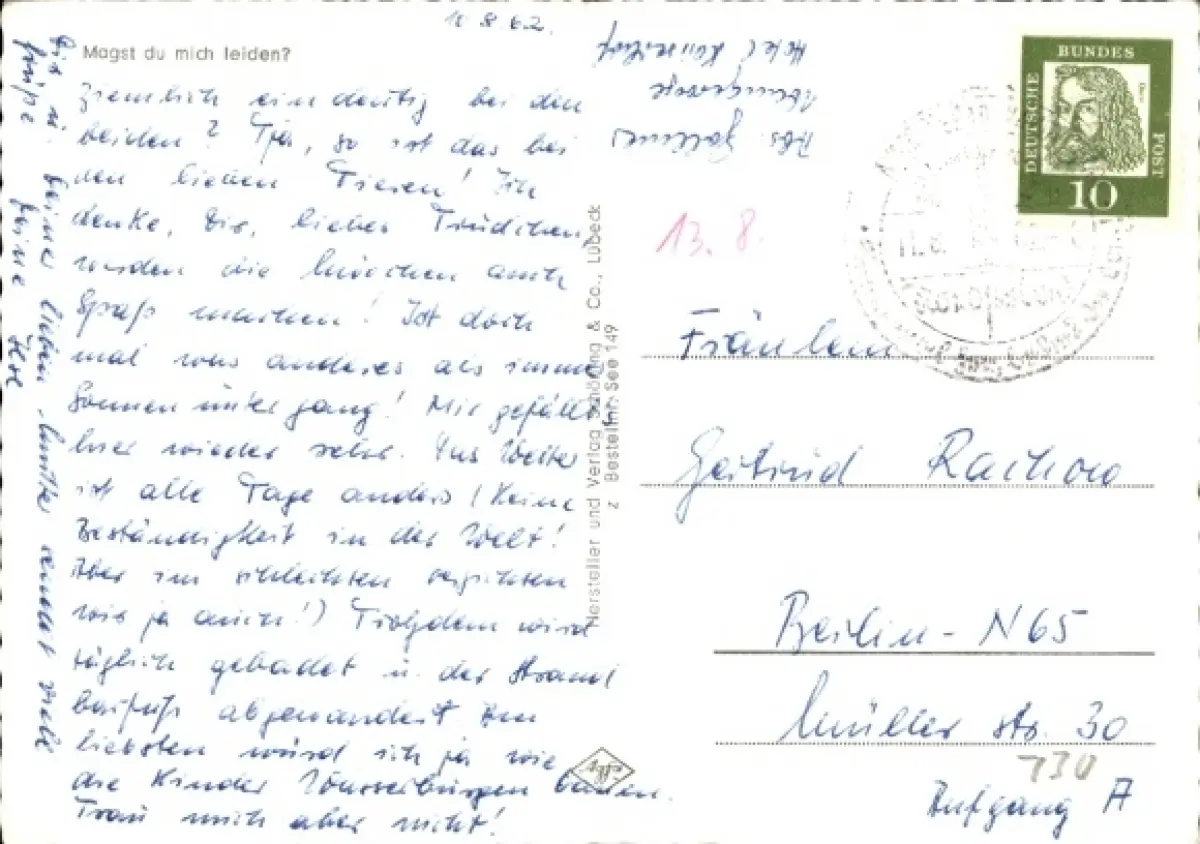 10.8.62.
Magst du mich leiden?
Ziemlich eindeutig bei den
beiden? Tja, so ist das bei
den lieben Tieren! Ich
denke, Dir, liebes Trudchen,
werden die Möwchen auch
Spaß machen! Ist doch
mal was anderes als immer
Sonnenuntergang! Mir gefällt
hier wieder sehr. Das Wetter
ist alle Tage anders (Keine
Beständigkeit in der Welt!
Aber im schlechten verzichten
wir ja auch!) Trotzdem wird
täglich gebadet u. der Strand
barfuß abgewandert. Am
liebsten würd ich ja wie
die Kinder Wasserburgen bauen.
Trau mich aber nicht!
Dir u. Deiner lieben Mutter sendet viele
Grüße Deine Ilse
Abs.
Hotel
Hersteller und Verlag Schöning & Co., Lübeck
z Bestellnr. See 149
DEUTSCHE BUNDES POST
10
11.8.
13.8.
Fräulein
Gertrud Rachow
Berlin-N65
Müller str. 30
Aufgang A